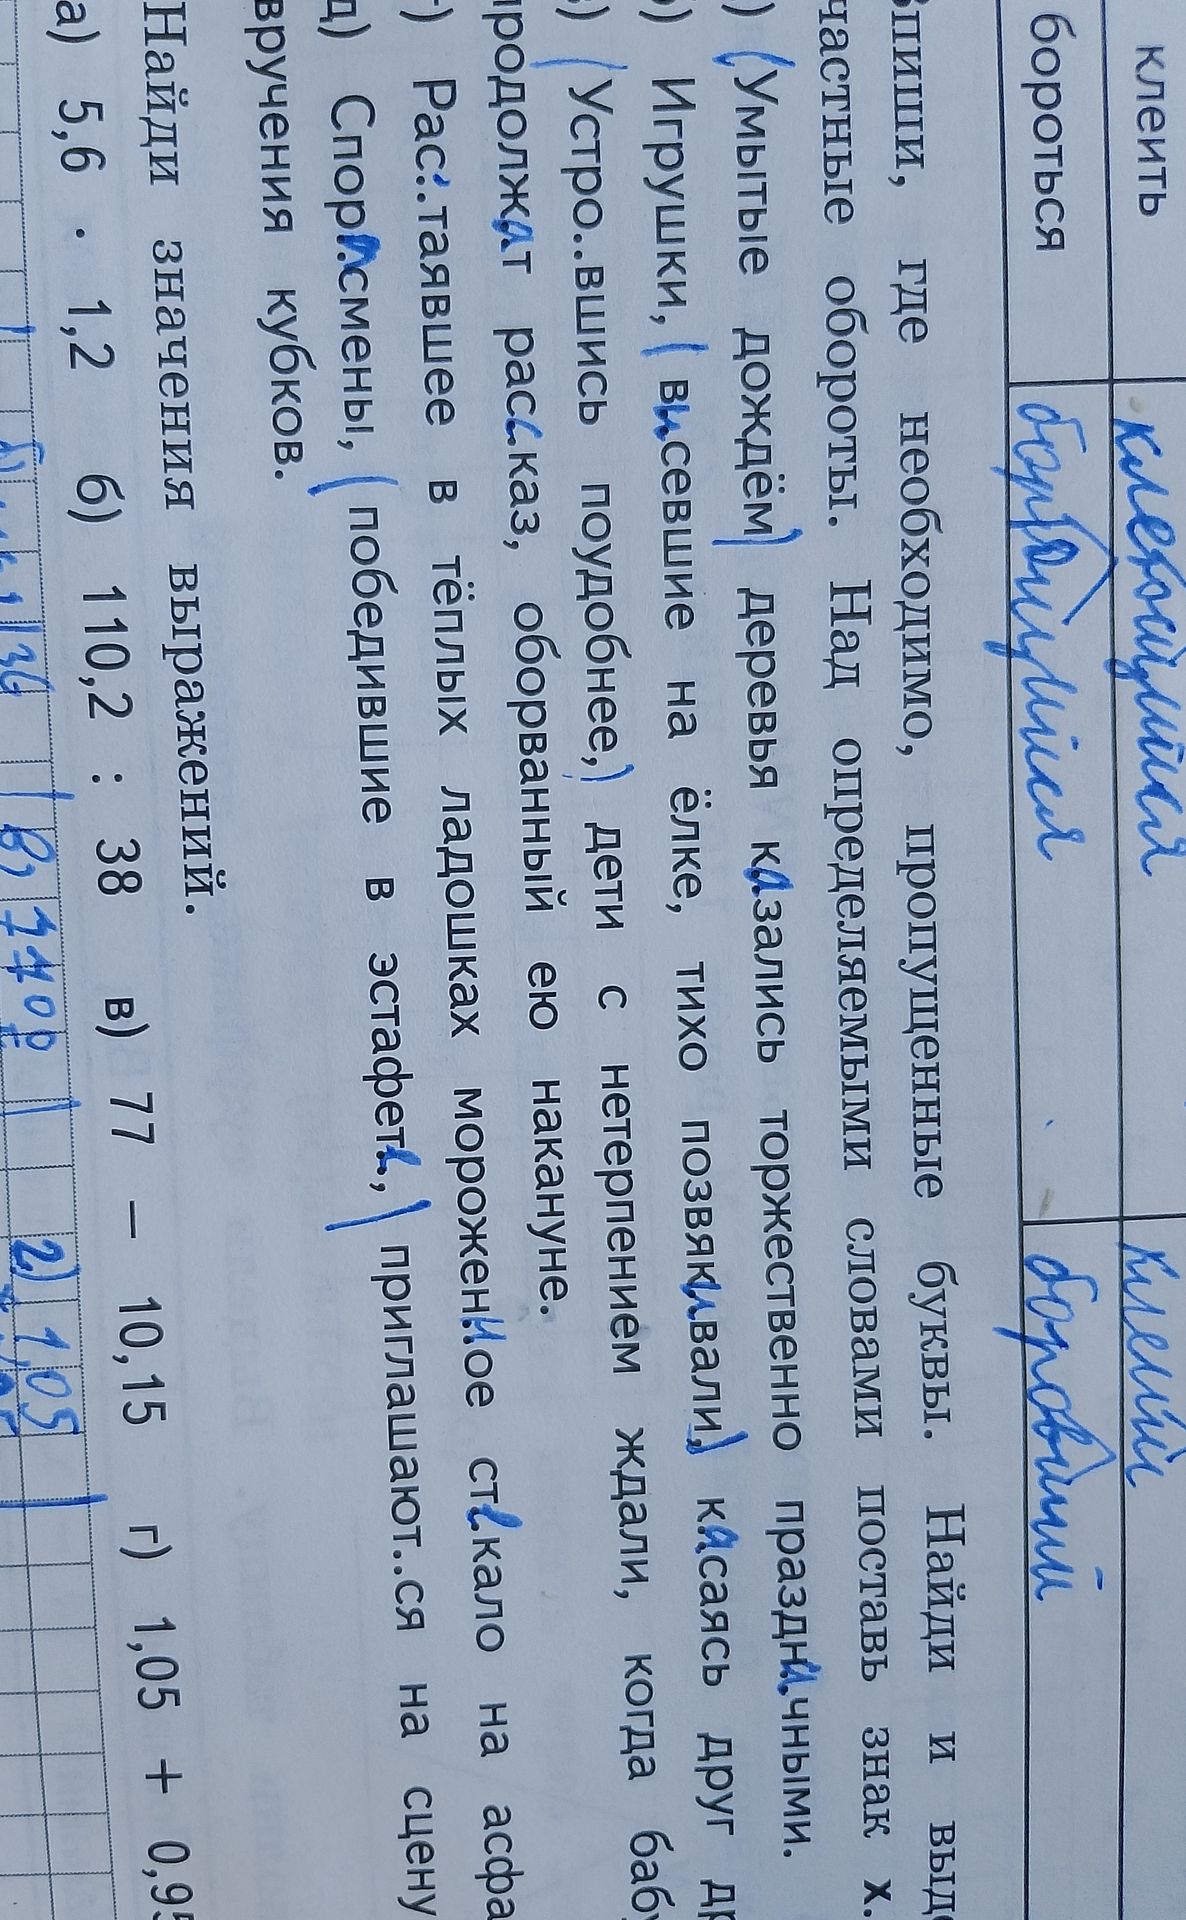 клеить клеющийся клений
бороться борющийся боровший
Впиши, где необходимо, пропущенные буквы. Найди и выд
частные обороты. Над определяемыми словами поставь знак х.
) (Умытые дождём) деревья казались торжественно праздничными.
) Игрушки, (висевшие на ёлке, тихо позвякивали,) касаясь друг др
) (Устро..вшись поудобнее,) дети с нетерпением ждали, когда баб
продолжат рассказ, оборванный ею накануне.
) Рас..таявшее в тёплых ладошках мороженное стекало на асфа
д) Спортсмены, (победившие в эстафете,) приглашают..ся на сцену
вручения кубков.
Найди значения выражений.
а) 5,6 · 1,2 б) 110,2 : 38 в) 77 – 10,15 г) 1,05 + 0,95
2) 1,05